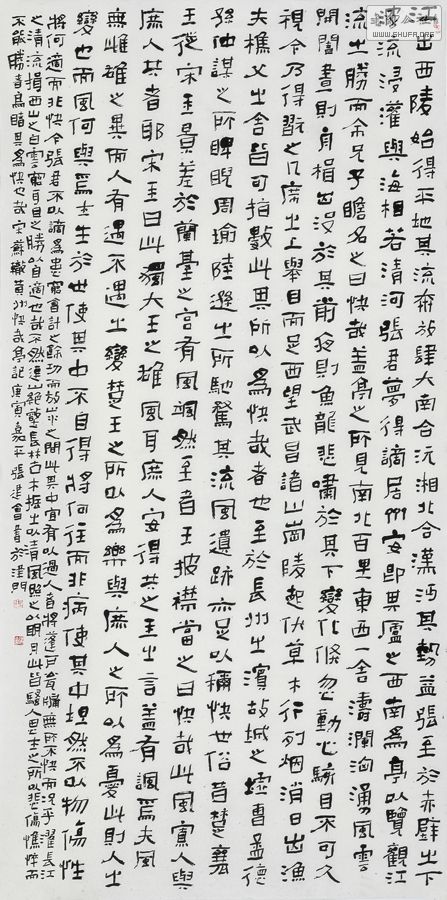 江出西陵始得平地其流奔放肆大南合沅湘北合漢沔其勢益張至於赤壁之下
波流浸灌與海相若清河張君夢得謫居齊安即其廬之西南為亭以覽觀江
流之勝而余兄子瞻名之曰快哉蓋亭之所見南北百里東西一舍濤瀾洶湧風雲
開闔晝則舟楫出沒於其前夜則魚龍悲嘯於其下變化倏忽動心駭目不可久
視今乃得翫之几席之上舉目而足西望武昌諸山岡陵起伏草木行列烟消日出漁
夫樵父之舍皆可指數此其所以為快哉者也至於長州之濱故城之墟曹孟德
孫仲謀之所睥睨周瑜陸遜之所馳騖其流風遺跡亦足以稱快世俗昔楚襄
王從宋玉景差於蘭臺之宮有風颯然至者王披襟當之曰快哉此風寡人與
庶人共者耶宋玉曰此獨大王之雄風耳庶人安得共之玉之言蓋有諷焉夫風
無雌雄之異而人有遇不遇之變楚王之所以為樂與庶人之所以為憂此則人之
變也而風何與焉士生於世使其中不自得將何往而非病使其中坦然不以物傷性
將何適而非快今張君不以謫為患竊會計之餘功而放山水之間此其中宜有以過人者將蓬戶甕牖無所不快而況乎濯長江
之清流揖西山之白雲窮耳目之勝以自適也哉不然連山絕壑長林古木振之以清風照之以明月此皆騷人思士之所以悲傷憔悴而
不能勝者烏睹其為快也哉宋蘇轍黃州快哉亭記庚寅嘉平張建會書於津門
WWW.SHUFA.ORG